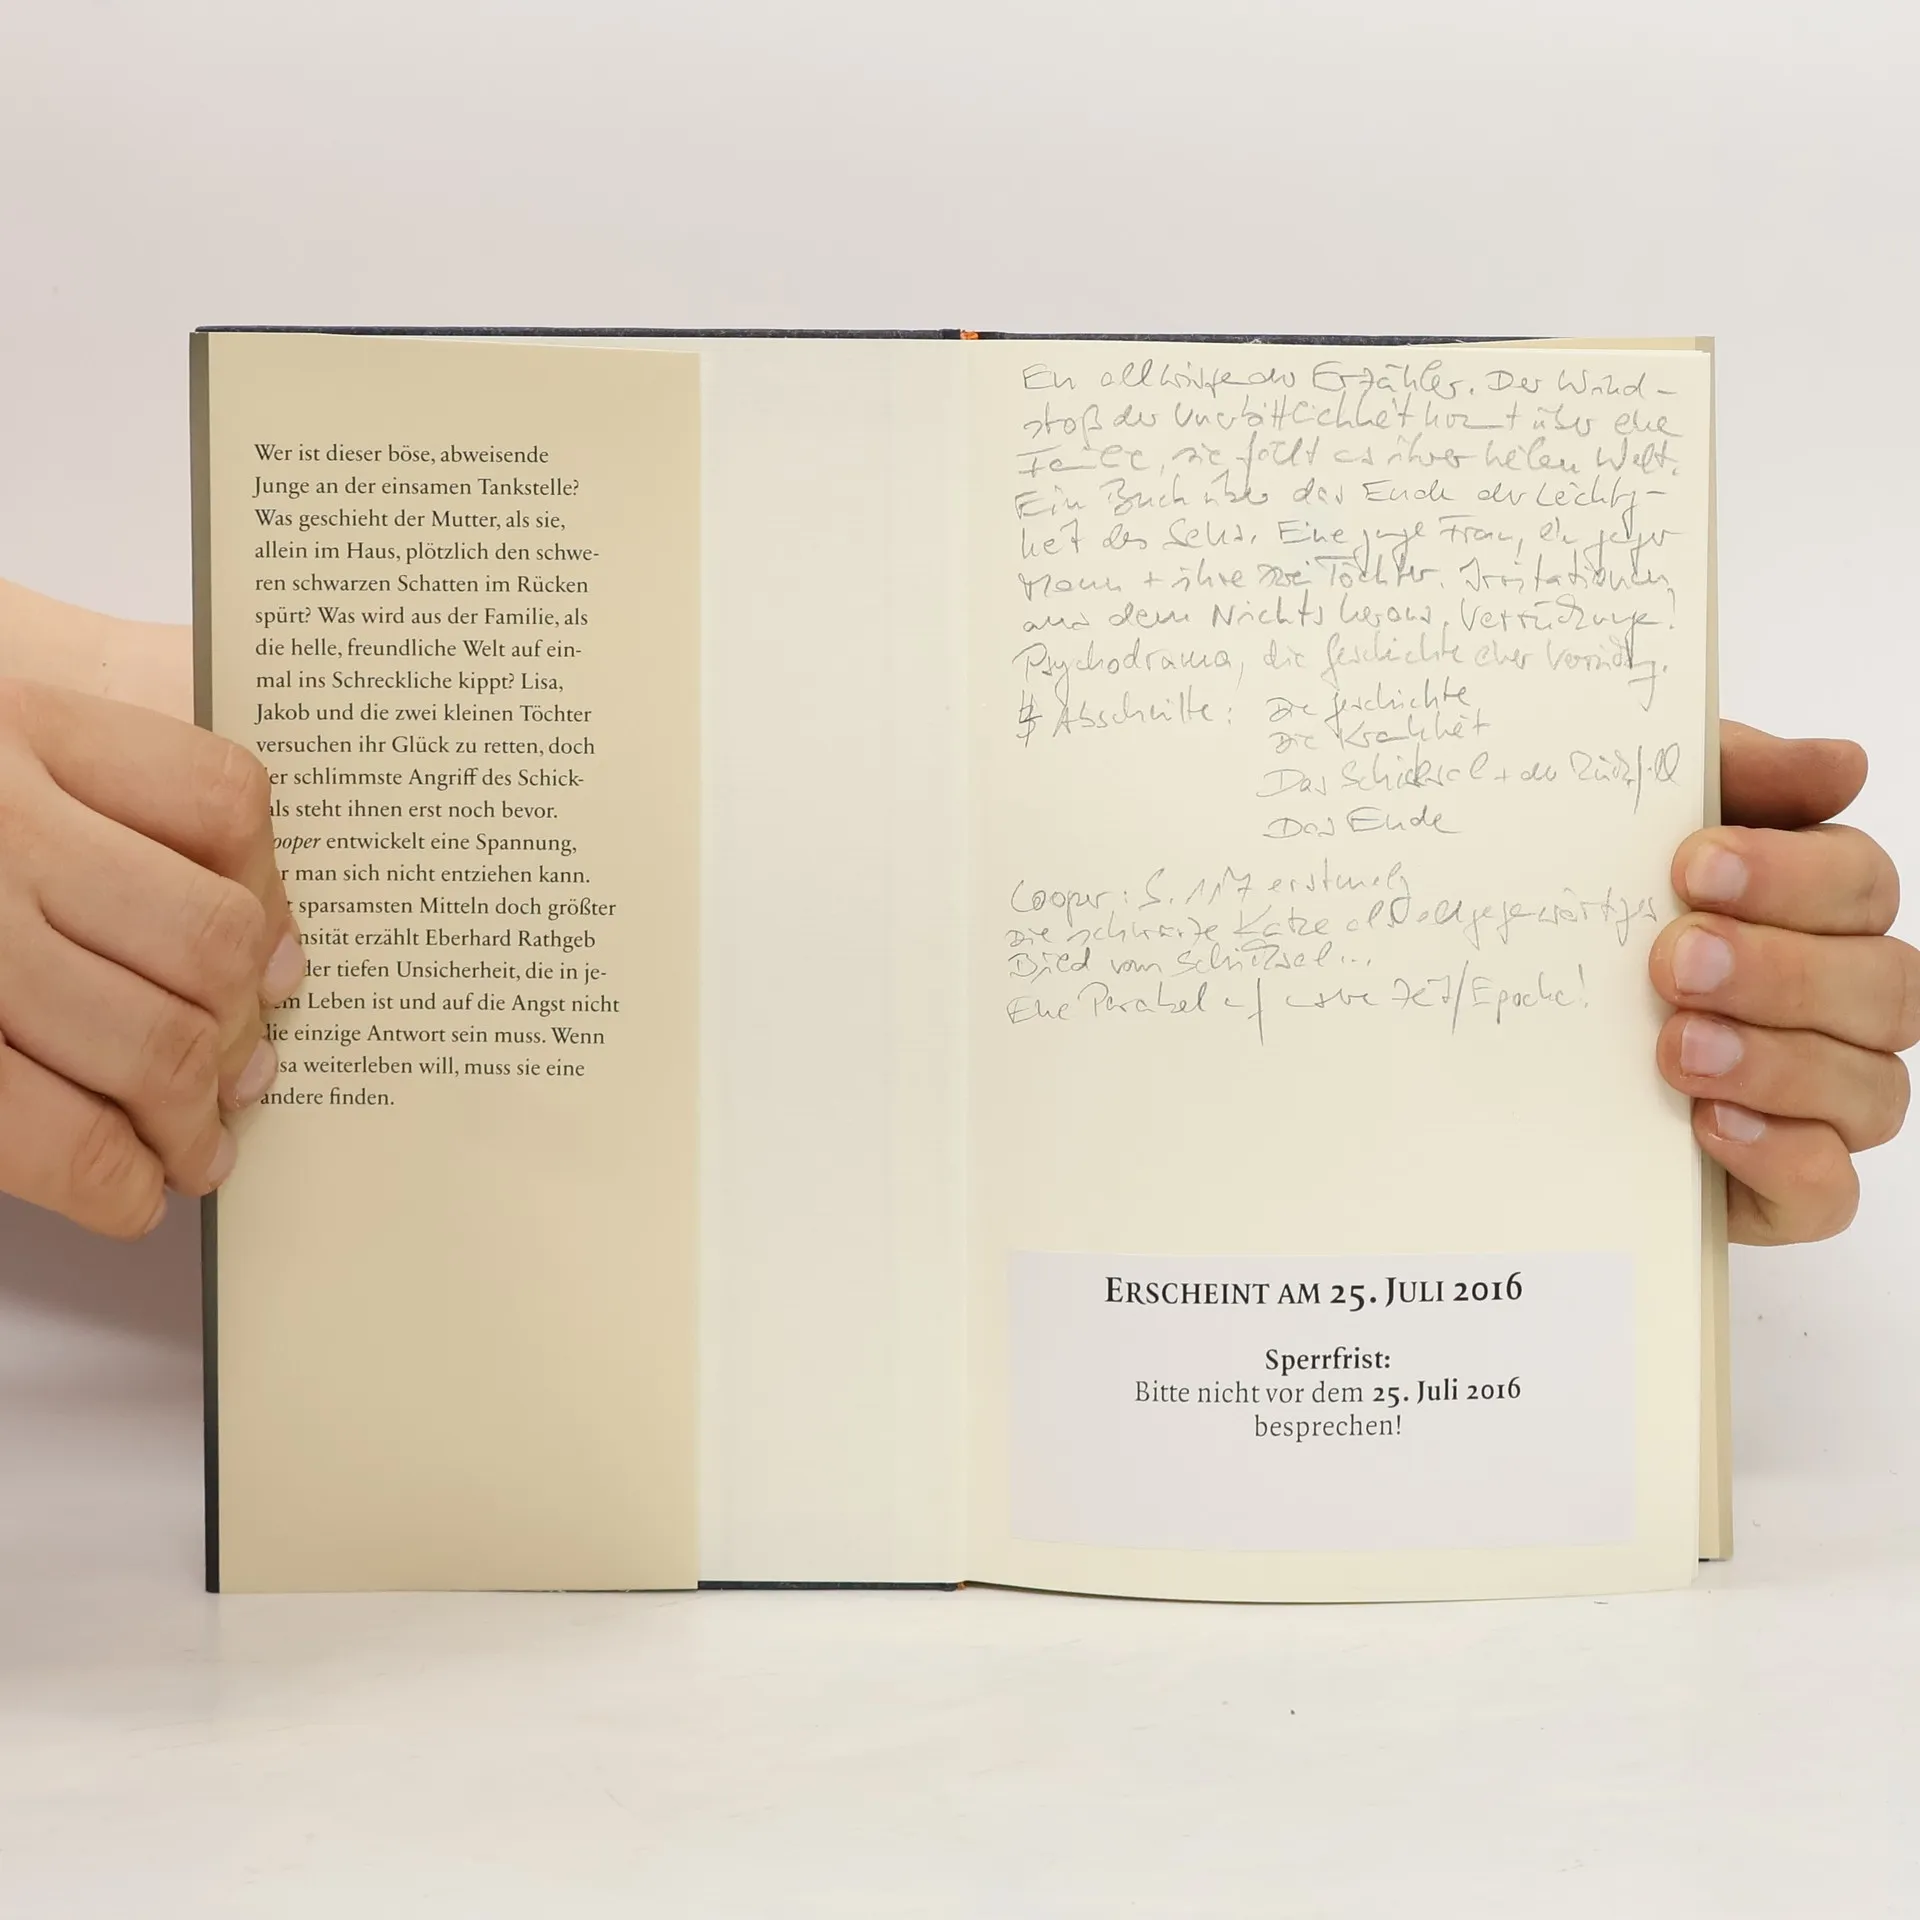 Wer ist dieser böse, abweisende
Junge an der einsamen Tankstelle?
Was geschieht der Mutter, als sie,
allein im Haus, plötzlich den schwe-
ren schwarzen Schatten im Rücken
spürt? Was wird aus der Familie, als
die helle, freundliche Welt auf ein-
mal ins Schreckliche kippt? Lisa,
Jakob und die zwei kleinen Töchter
versuchen ihr Glück zu retten, doch
er schlimmste Angriff des Schick-
als steht ihnen erst noch bevor.
ooper entwickelt eine Spannung,
r man sich nicht entziehen kann.
t sparsamsten Mitteln doch größter
nsität erzählt Eberhard Rathgeb
der tiefen Unsicherheit, die in je-
em Leben ist und auf die Angst nicht
die einzige Antwort sein muss. Wenn
sa weiterleben will, muss sie eine
andere finden.
Ein allwissender Erzähler. Der Wind-
stoß der Unerbittlichkeit kommt über eine
Familie, sie fällt aus ihrer heilen Welt.
Ein Buch über das Ende der Leichtig-
keit des Seins. Eine junge Frau, ein junger
Mann + ihre zwei Töchter. Irritationen
aus dem Nichts heraus. Verrückung!
Psychodrama, die Geschichte einer
4 Abschnitte: Die Geschichte
Die Krankheit
Das Schicksal + der Rückfall
Das Ende
Cooper: S. 117 erstmalig
Die schwarze Katze als allgegenwärtiges
Bild vom Schicksal...
Eine Parabel auf unsere Zeit/Epoche!
ERSCHEINT AM 25. JULI 2016
Sperrfrist:
Bitte nicht vor dem 25. Juli 2016
besprechen!